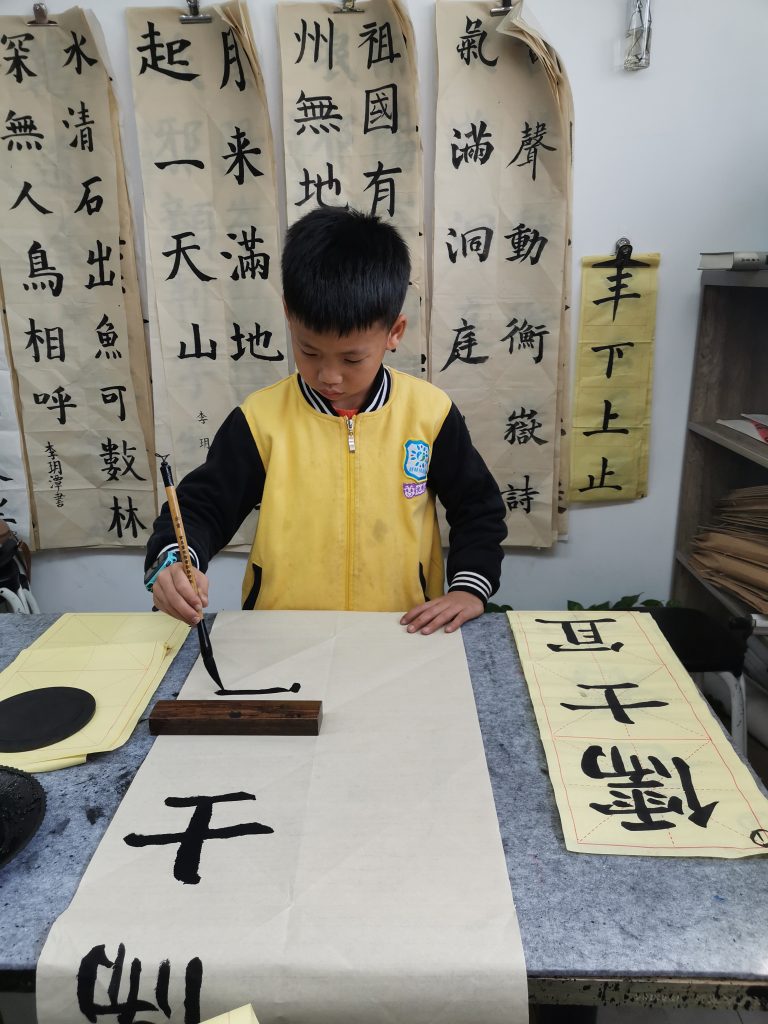 水清石出魚可數林
深無人鳥相呼
李玥潭書
月来滿地
起一天山
李玥
祖國有
州無地
聲動衡嶽詩
氣滿洞庭
丰下上止
儒士
士